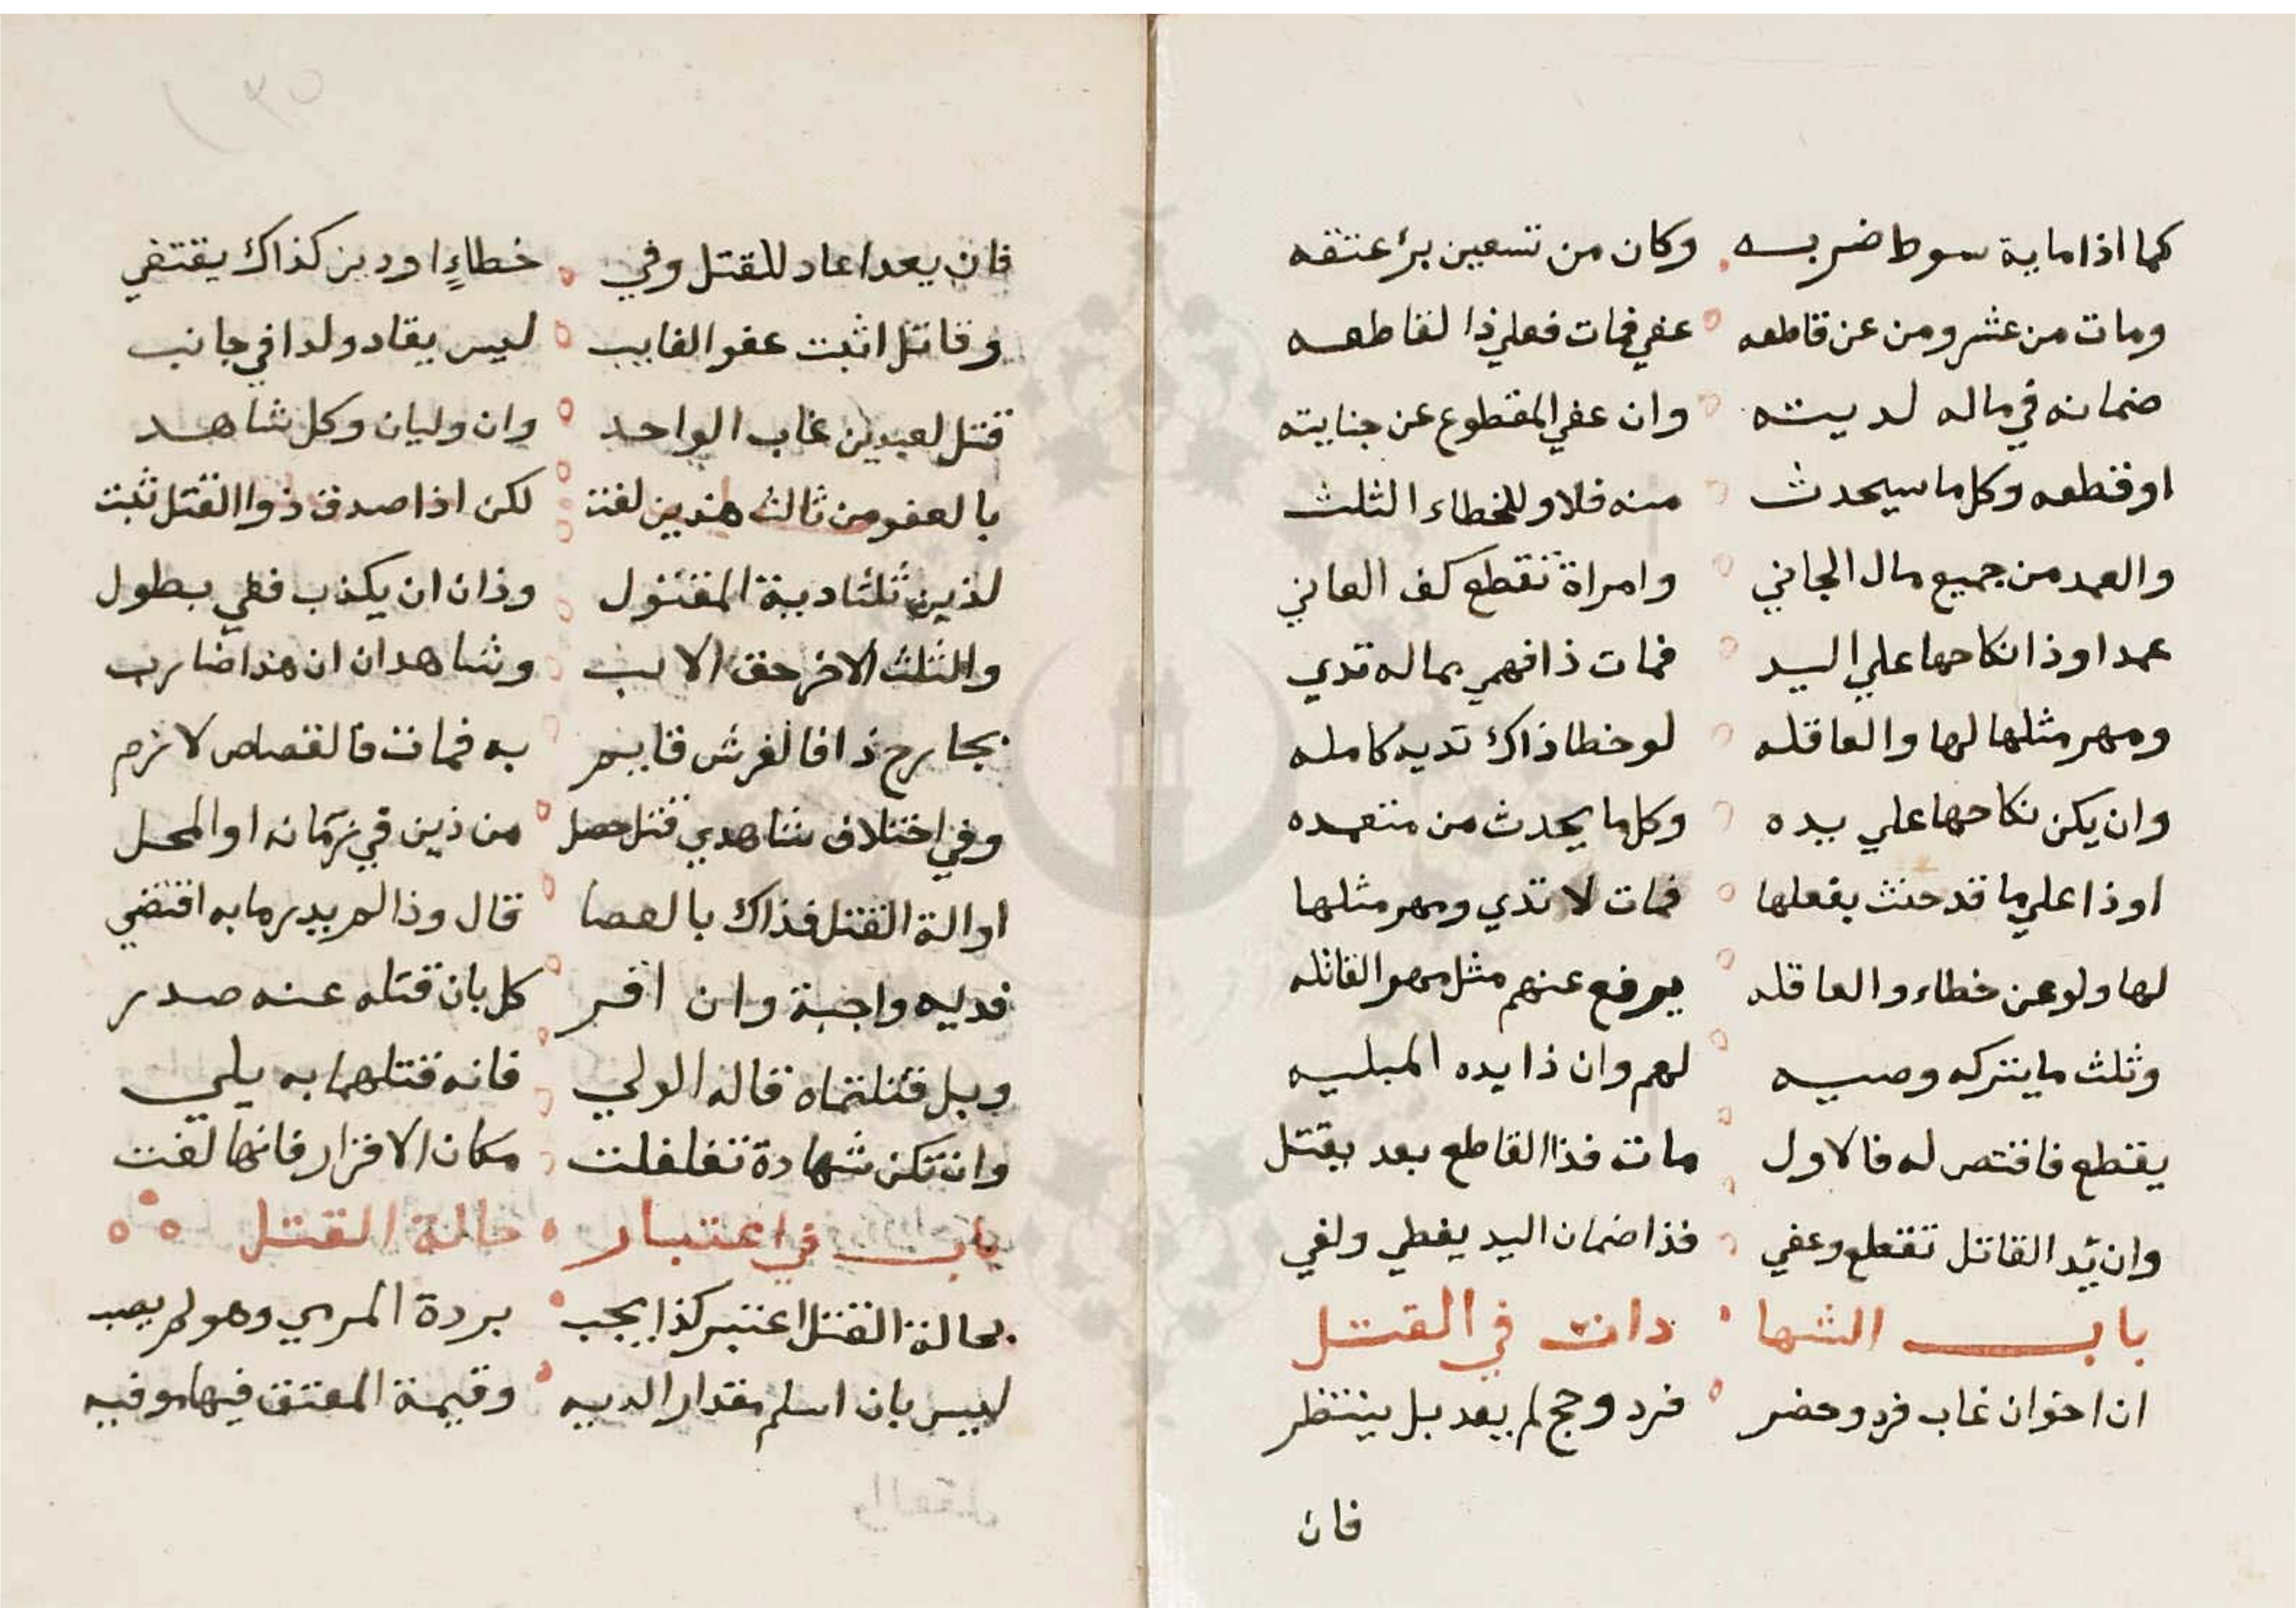 كما اذا ماية سوط ضربه وكان من تسعين برء عتقه
ومات من عشر ومن عن قاطعه عفي فمات فعلي ذا القاطعه
ضمانه في ماله لديته وان عفي المقطوع عن جنايته
او قطعه وكل ما سيحدث منه فلا وللخطاء الثلث
والعمد من جميع مال الجاني وامراة تقطع كف العاني
عمدا وذا نكاحها علي اليد فمات ذا فهي بماله تدي
ومهر مثلها لها والعاقله لو خطا ذاك تديه كامله
وان يكن نكاحها علي يده وكل ما يحدث من متعمده
او ذا علي ما قد حنث بفعلها فمات لا تدي ومهر مثلها
لها ولو عن خطاء والعاقله يرفع عنهم مثل مهر القاتله
وثلث ما يتركه وصيه لهم وان ذا يده المبليه
يقطع فاقتص له فالاول مات فذا القاطع بعد يقتل
وان يد القاتل تقطع وعفي فذا ضمان اليد يغطي ولغي
باب الشها دات في القتل
ان اخوان غاب فرد وحضر فرد وحج لم يعد بل ينتظر
فان
فان يعد اعاد للقتل وفي خطاءٍ او دين كذاك يقتفي
وقاتل اثبت عفو الغايب ليس يقاد ولدا في جانب
قتل لعبدين غاب الواحد وان وليان وكل شاهد
بالعفو من ثالث هذين لغت لكن اذا صدق ذوا القتل ثبت
لذين ثلثا دية المقتول وذان ان يكذب ففي بطول
والثلث الاخر حق الاب وشاهدان ان هذا ضارب
بجارح ذا فالفرش قايم به فمات فالقصاص لازم
وفي اختلاف شاهدي قتل حصل من ذين في زمانه او المحل
او الة القتل فذاك بالعصا قال وذا لم يدر ما به اقتضي
فديه واجبة وان اقر كل بان قتله عنه صدر
وبل قتلتماه قاله الولي فانه قتلهما به يلي
وان تكن شهادة تغلغلت مكان الاقرار فانها لغت
باب في اعتبار حالة القتل
بحالة القتل اعتبر كذا يجب بردة المرمي وهو لم يصب
ليس بان اسلم مقدار الديه وقيمة المعتق فيها موفيه
والعقل